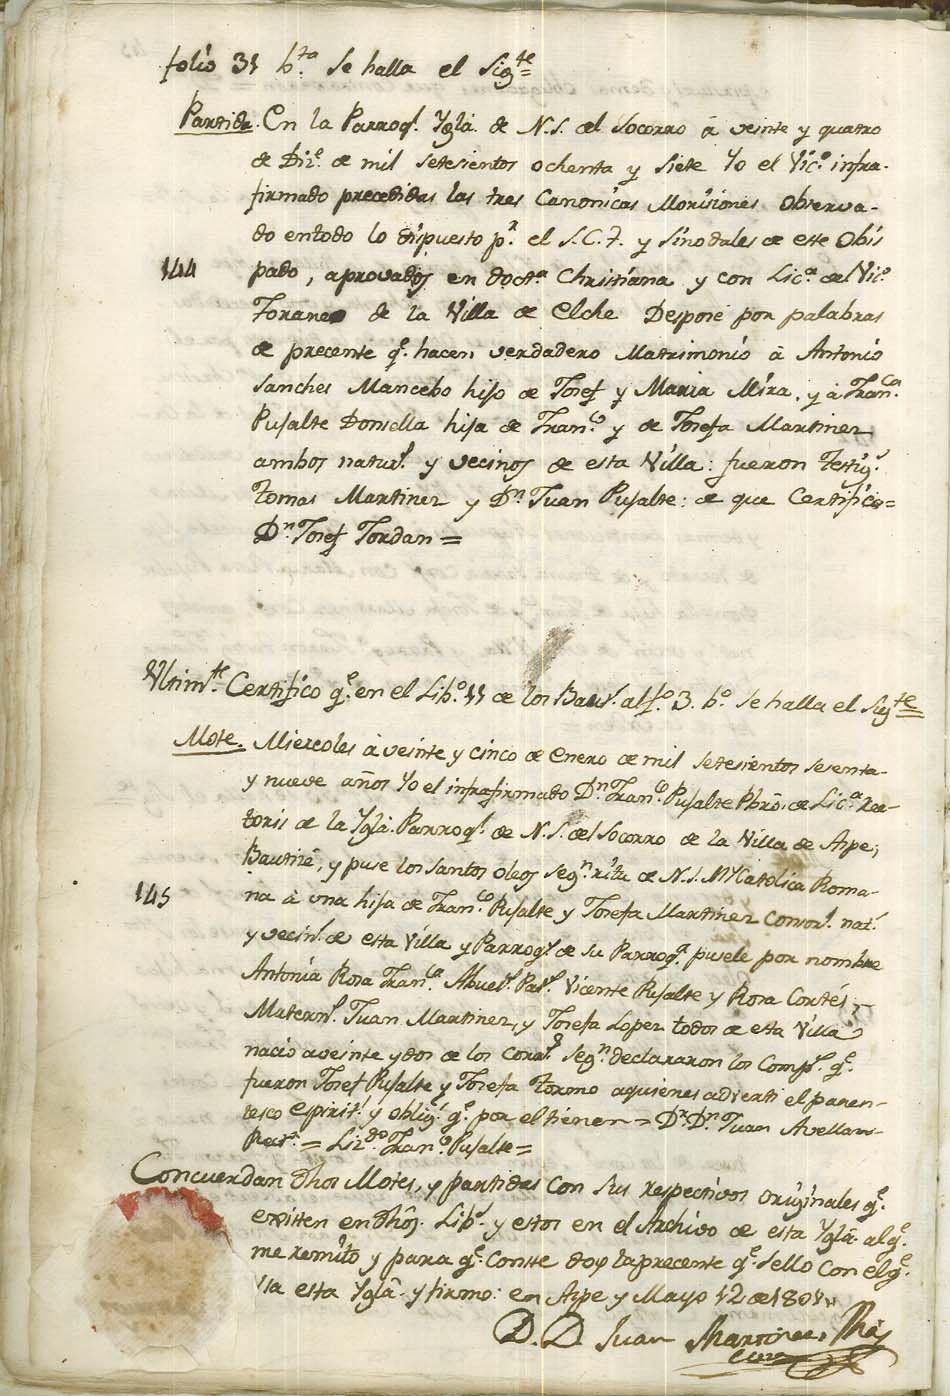 folio 31 bto. se halla el Sigte
Partida. En la Parroql. Yglã. de N. S. del Socorro à veinte y quatro
de Dize. de mil setesientos ochenta y siete Yo el Vico. infra-
firmado precedidas las tres Canonicas Monisiones Observa-
do entodo lo dispuesto pr. el S.C.T. y Sinodales de este Obis
144
pado, aprovados en docta. Christiana y con Lica. del Vico.
Foraneo de la Villa de Elche Despose por palabras
de precente qe. hacen verdadero Matrimonio à Antonio
Sanches Mancebo hijo de Josef y Maria Mira, y à Franca.
Pujalte Donsella hija de Franco. y de Josefa Martinez
ambos naturs. y vecinos de esta Villa: fueron testigs.
tomas Martinez y Dn. Juan Pujalte: de que Certifico=
Dn. Josef Jordan =
Ultimte. Certifico qe. en el Libo. 11 de los Baus. al fo. 3. bo. se halla el Sigte
Mote. Miercoles à veinte y cinco de Enero de mil setesientos sesenta
y nueve años Yo el infrafirmado Dn. Franco. Pujalte Pbro. de Lica. Rec-
toris de la Yglã. Parroql. de N. S. del Socorro de la Villa de Aspe,
Bautisè, y puse los santos oleos segn. ritu de N. S. Me. Catolica Roma-
145
na à una hija de Franco. Pujalte y Josefa Martinez Consors. nats.
y vecins. de esta Villa y Parroqs. de su Parroqa. pusele por nombre
Antonia Rosa Franca. Abuels. Pats. Vicente Pujalte y Rosa Cortés,
Materns. Juan Martinez, y Josefa Lopez todos de esta Villa
nacio aveinte ydos de los Corrs. Segn. declararon los Comps. qe.
fueron Josef Pujalte y Josefa Tormo aquienes adverti el paren-
tesco Espirit. y oblign. qe. por el tienen = Dr. Dn. Juan Avellan
Recr. = Lizdo. Franco. Pujalte =
Concuerdan dhos Motes, y partidas con sus respectivos originales qe.
existen en dhõs. Libs. y estos en el Archivo de esta Yglã. al qe.
me remito y para qe. Conste doy la precente qe. Sello con el qe.
usa esta Yglã. y firmo: en Aspe y Mayo 12 de 1801
D. D. Juan Martinez,
Cura